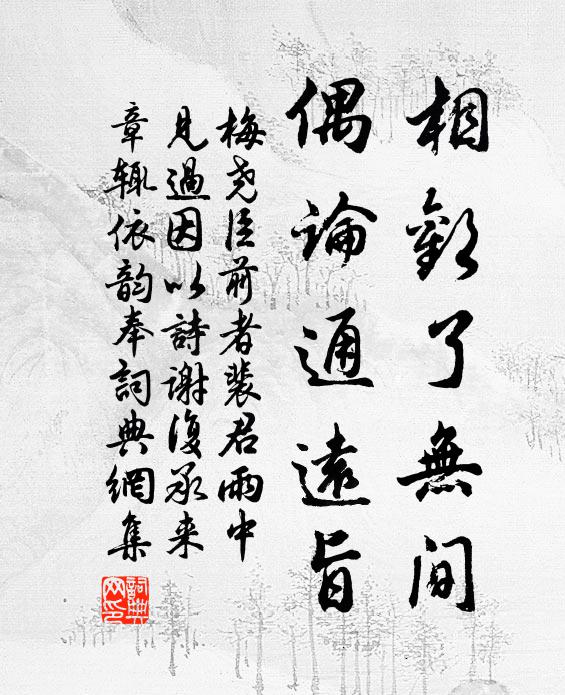 相歡了無間
偶論通遠旨
梅堯臣前者裴君雨中
見過因以詩謝復承来
章輒依韵奉詞典網集